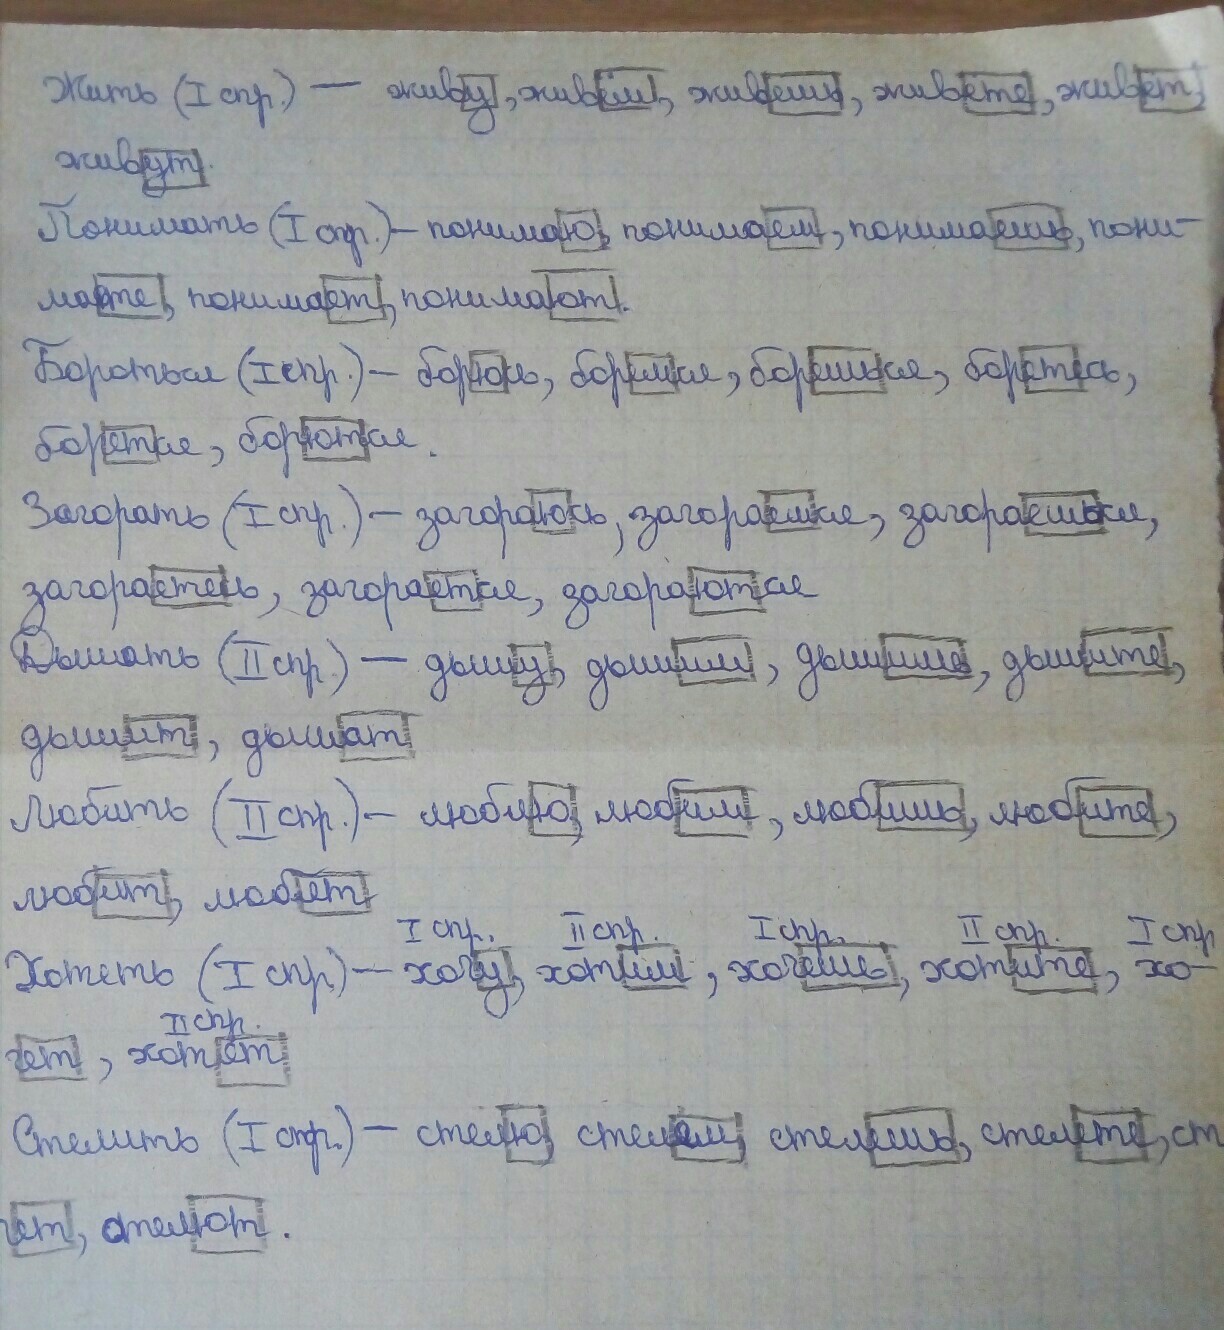 Жить (I спр.) — живу, живём, живёшь, живёте, живёт,
живут.
Понимать (I спр.) – понимаю, понимаем, понимаешь, пони-
маете, понимает, понимают.
Бороться (I спр.) – борюсь, боремся, борешься, боретесь,
борется, борются.
Загорать (I спр.) – загораюсь, загораемся, загораешься,
загораетесь, загорается, загораются
Дышать (II спр.) — дышу, дышим, дышишь, дышите,
дышит, дышат
Любить (II спр.) – люблю, любим, любишь, любите,
любит, любят
I спр. II спр. I спр. II спр. I спр
Хотеть (I спр.) – хочу, хотим, хочешь, хотите, хо-
II спр.
чет, хотят
Стелить (I спр.) – стелю, стелем, стелешь, стелете, ст
ет, стелют.